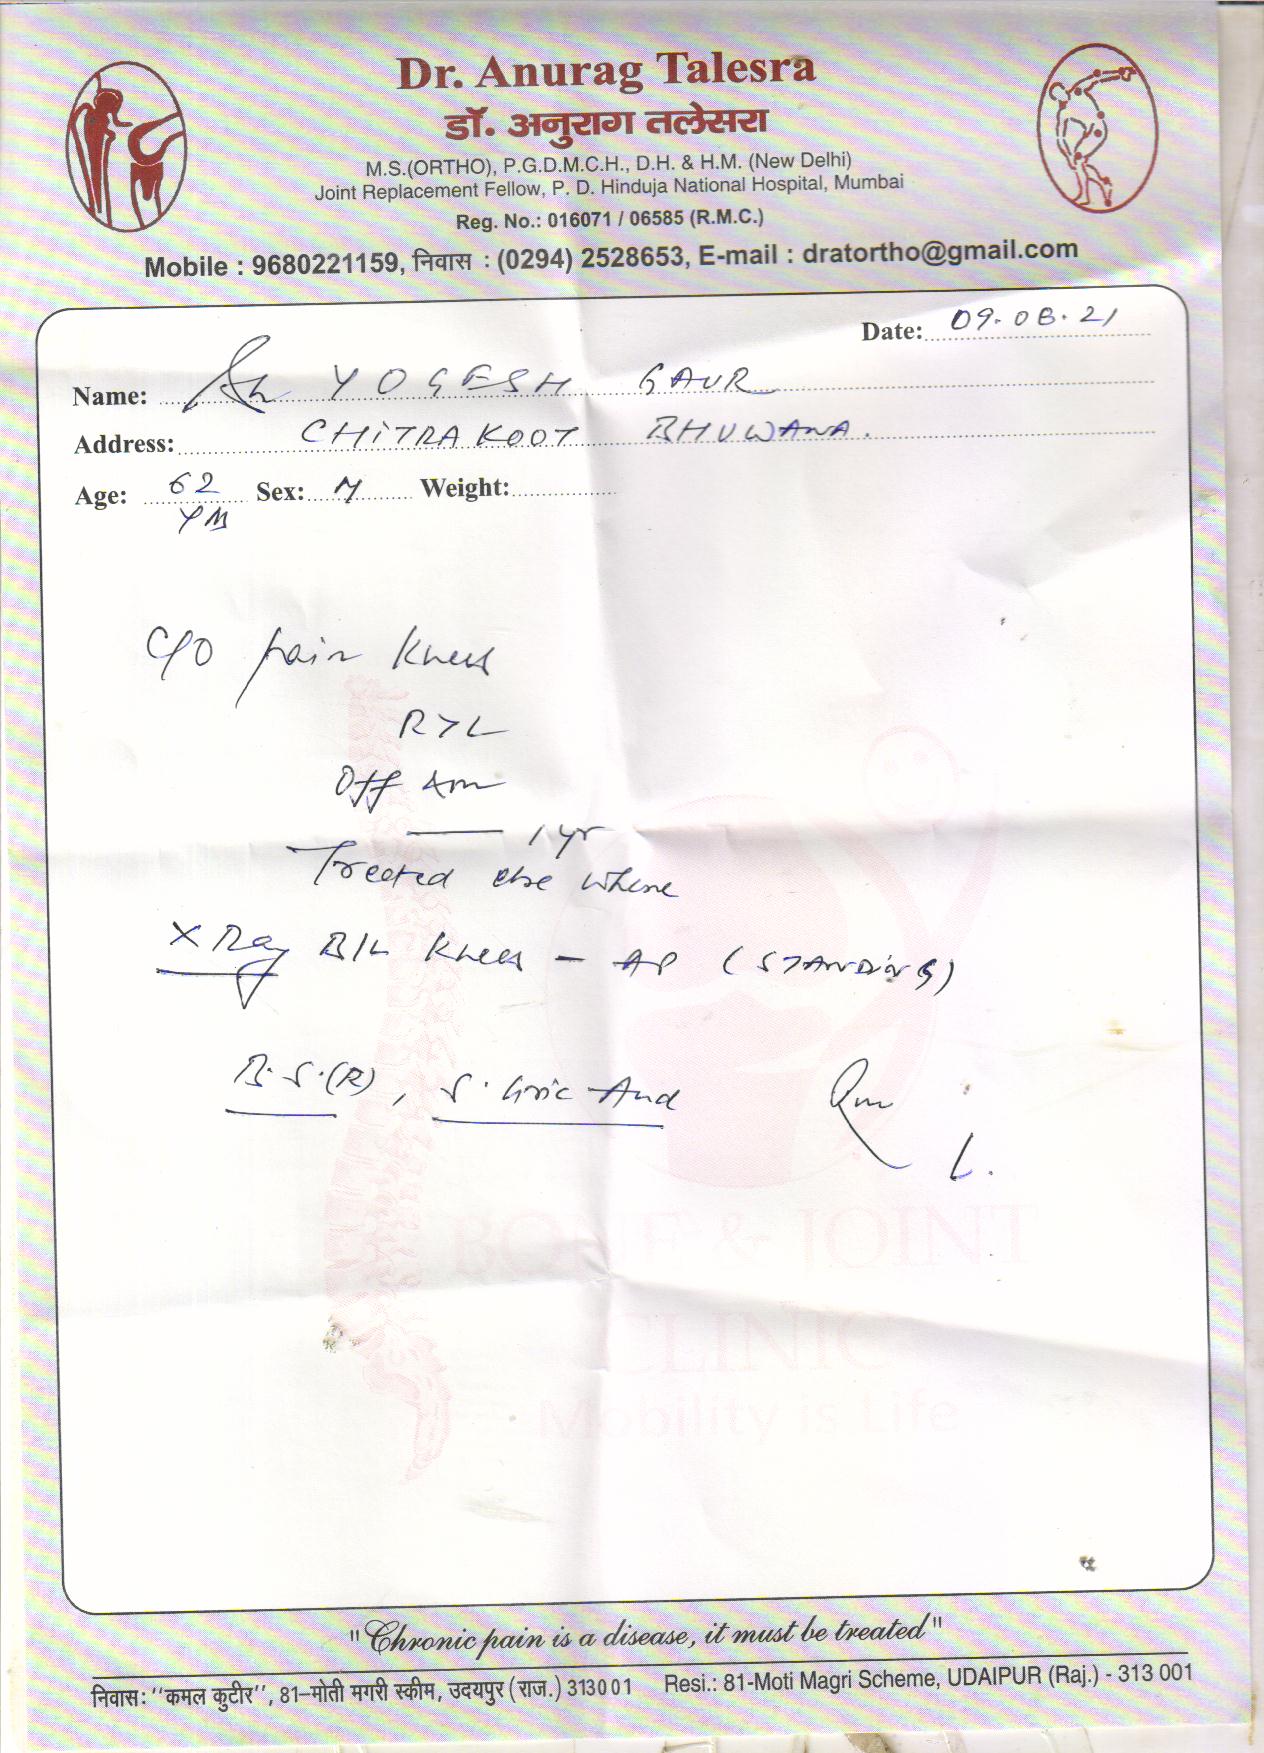 Dr. Anurag Talesra
डॉ. अनुराग तलेसरा
M.S.(ORTHO), P.G.D.M.C.H., D.H. & H.M. (New Delhi)
Joint Replacement Fellow, P. D. Hinduja National Hospital, Mumbai
Reg. No.: 016071 / 06585 (R.M.C.)
Mobile : 9680221159, निवास : (0294) 2528653, E-mail : dratortho@gmail.com
Date: 09.08.21
Name: Sh YOGESH GAUR
Address: CHITRAKOOT BHUWANA.
Age: 62 Sex: M Weight:
C/O pain Knees
R>L
Off &
1 yr
Treated else where
X Ray B/L Knees - AP (STANDING)
B.S.(R), S. Uric Acid
BONE & JOINT
CLINIC
Mobility is Life
"Chronic pain is a disease, it must be treated"
निवास: ''कमल कुटीर'', 81–मोती मगरी स्कीम, उदयपुर (राज.) 313001 Resi.: 81-Moti Magri Scheme, UDAIPUR (Raj.) - 313 001